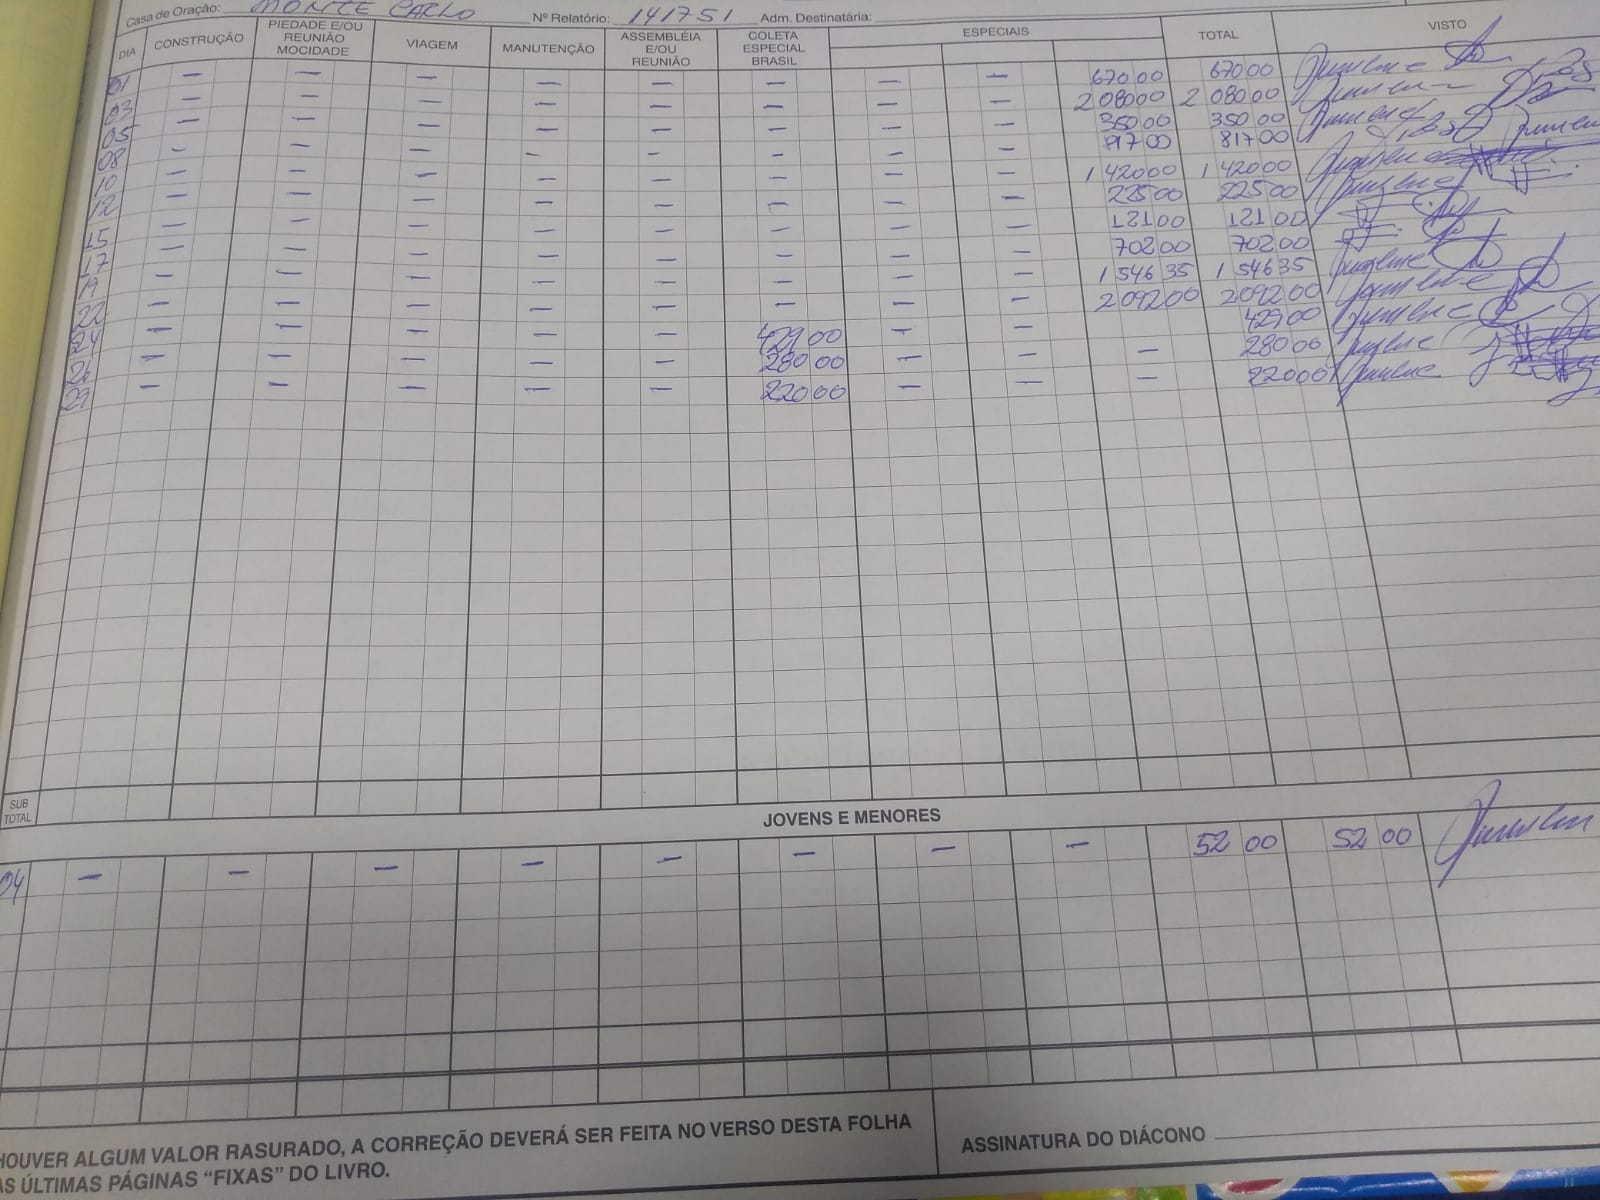 Casa de Oração: MONTE CARLO Nº Relatório: 141751 Adm. Destinatária:
DIA CONSTRUÇÃO PIEDADE E/OU REUNIÃO MOCIDADE VIAGEM MANUTENÇÃO ASSEMBLÉIA E/OU REUNIÃO COLETA ESPECIAL BRASIL ESPECIAIS TOTAL VISTO
01 — — — — — — — — 670 00 670 00
03 — — — — — — — — 2 080 00 2 080 00
05 — — — — — — — — 350 00 350 00
08 — — — — — — — — 817 00 817 00
10 — — — — — — — — 1 420 00 1 420 00
12 — — — — — — — — 225 00 225 00
15 — — — — — — — — 1 21 00 1 21 00
17 — — — — — — — — 702 00 702 00
19 — — — — — — — — 1 546 35 1 546 35
22 — — — — — — — — 2 092 00 2 092 00
24 — — — — — 429 00 — — 429 00
26 — — — — — 280 00 — — — 280 00
29 — — — — — 220 00 — — — 220 00
SUB TOTAL
JOVENS E MENORES
04 — — — — — — — — 52 00 52 00
HOUVER ALGUM VALOR RASURADO, A CORREÇÃO DEVERÁ SER FEITA NO VERSO DESTA FOLHA
AS ÚLTIMAS PÁGINAS “FIXAS” DO LIVRO.
ASSINATURA DO DIÁCONO